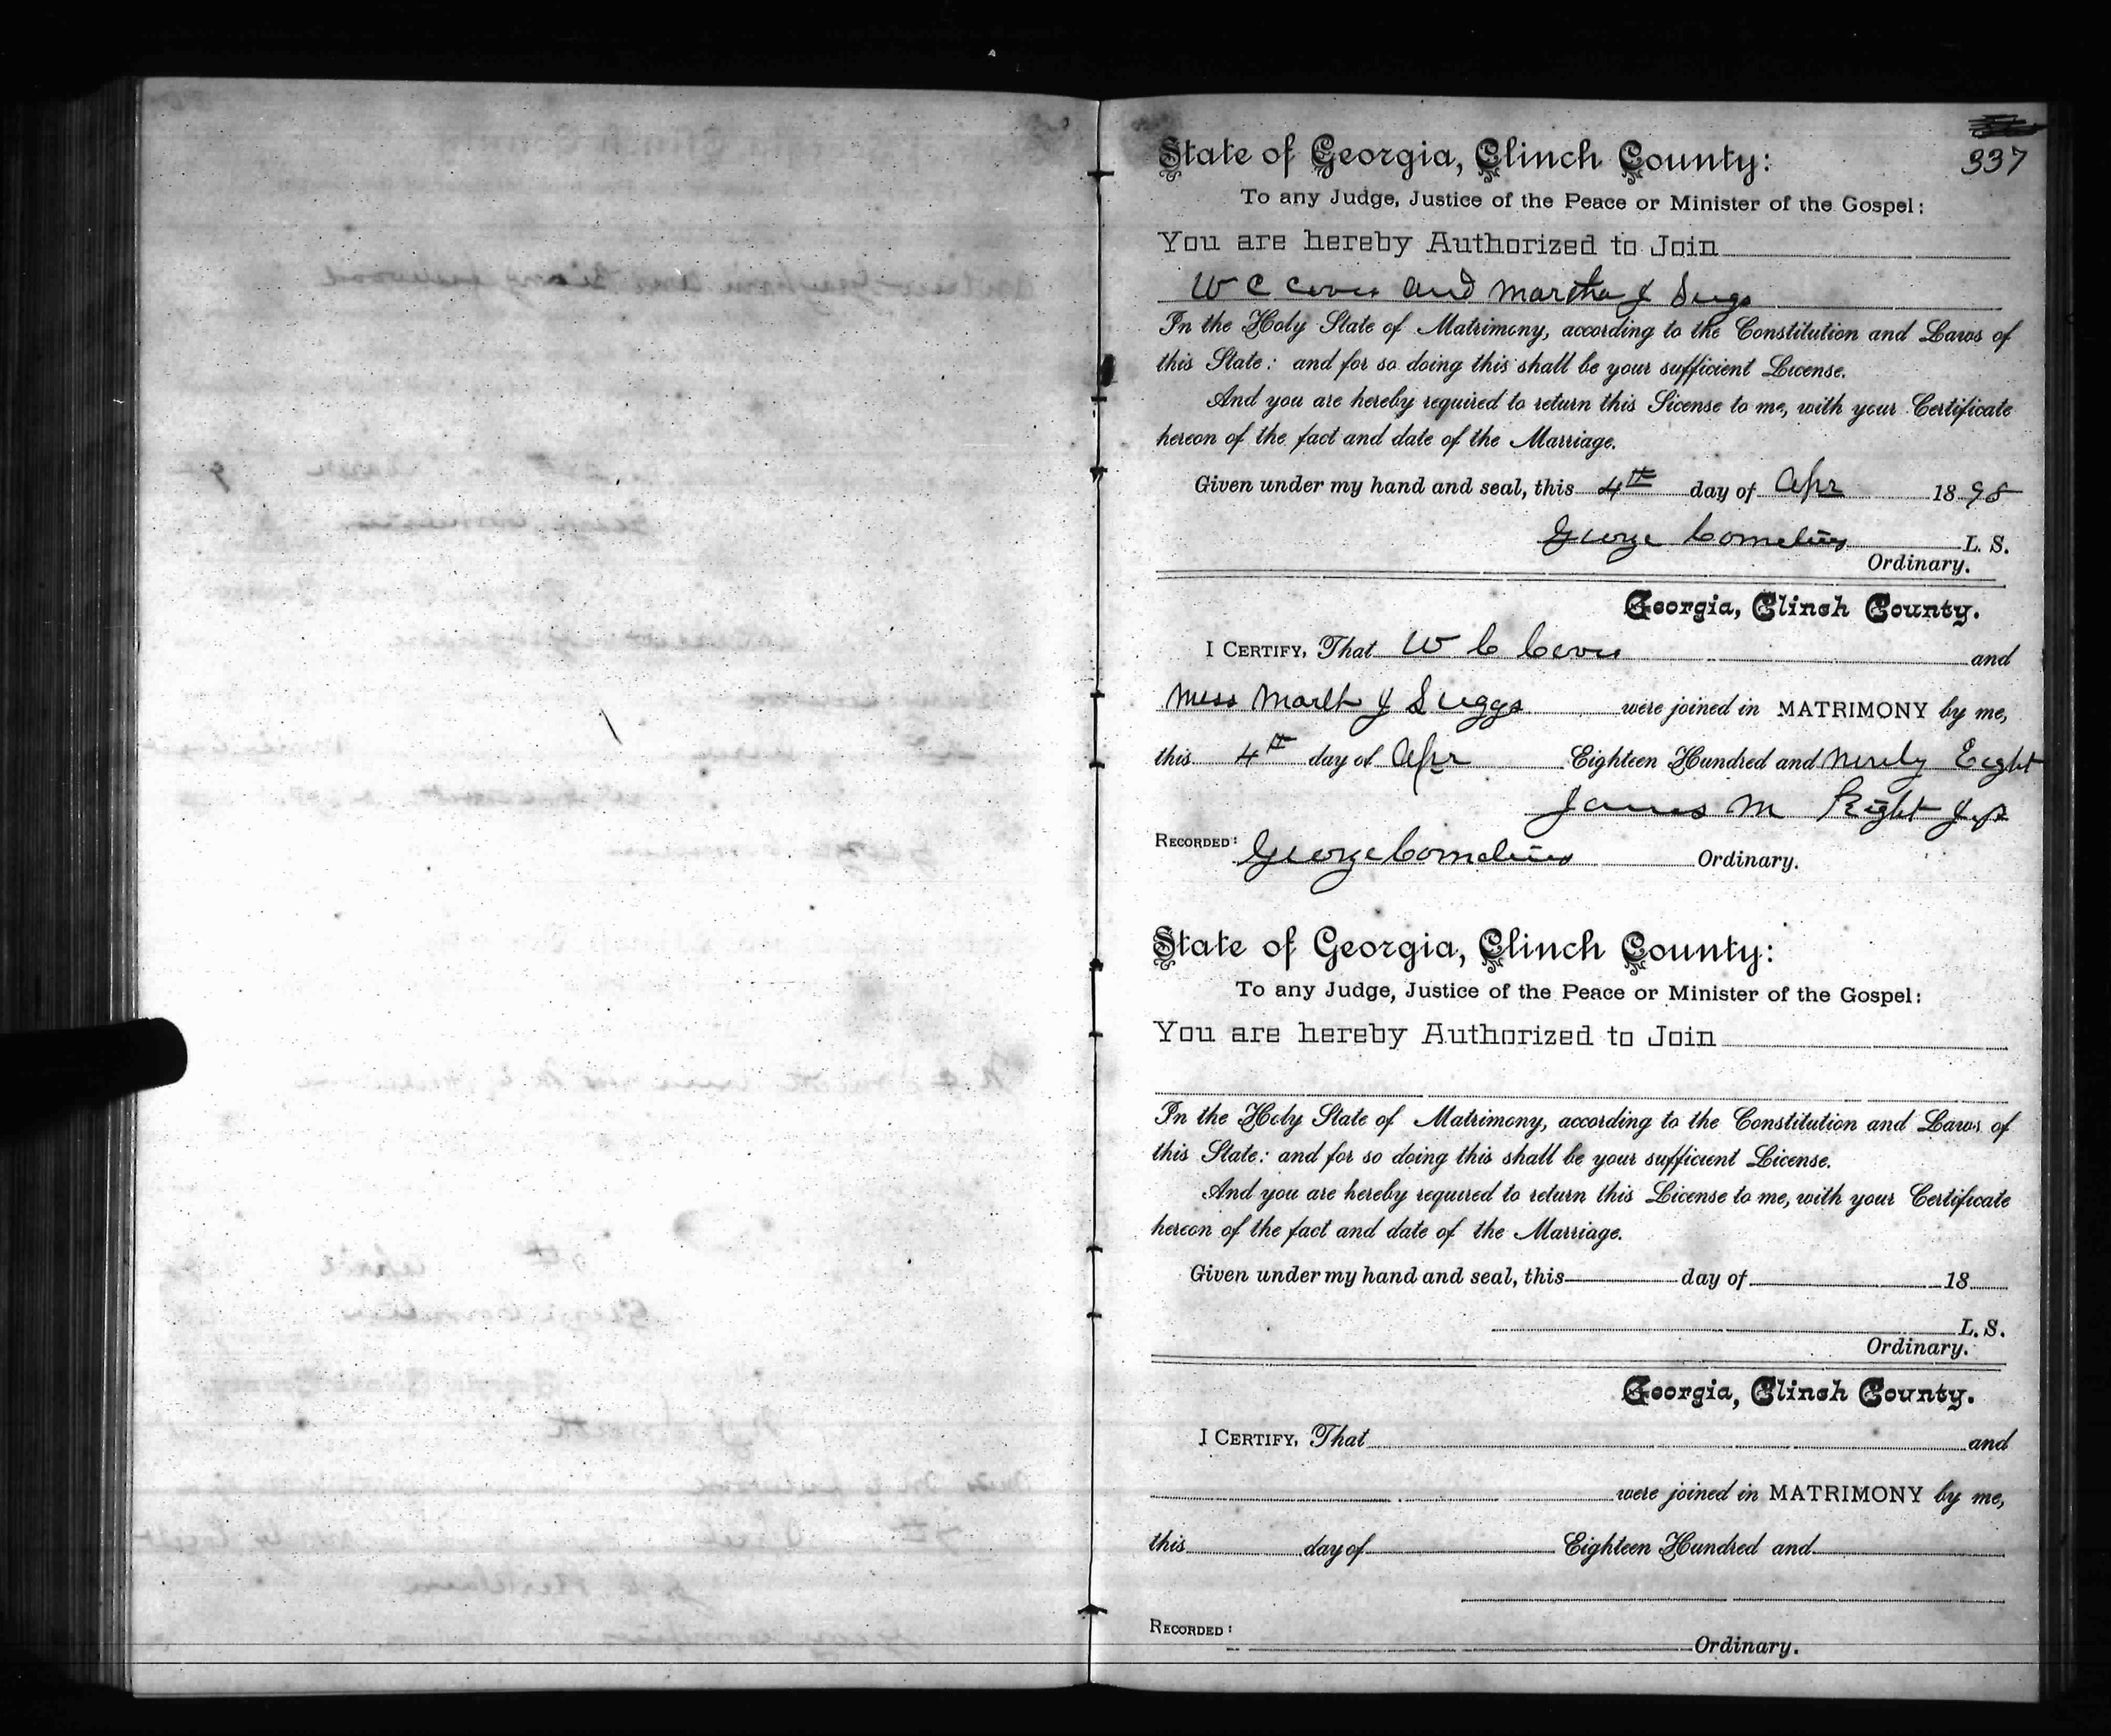 337
State of Georgia, Clinch County:
To any Judge, Justice of the Peace or Minister of the Gospel:
You are hereby Authorized to Join
W C and Martha J Sugs
In the Holy State of Matrimony, according to the Constitution and Laws of
this State: and for so doing this shall be your sufficient License.
And you are hereby required to return this License to me, with your Certificate
hereon of the fact and date of the Marriage.
Given under my hand and seal, this 4th day of Apr 1898
George Cornelius L. S.
Ordinary.
Georgia, Clinch County.
I CERTIFY, That W C and
Miss Marth J Suggs were joined in MATRIMONY by me,
this 4th day of Apr Eighteen Hundred and Ninety Eight
James M Right J P
RECORDED: George Cornelius Ordinary.
State of Georgia, Clinch County:
To any Judge, Justice of the Peace or Minister of the Gospel:
You are hereby Authorized to Join
In the Holy State of Matrimony, according to the Constitution and Laws of
this State: and for so doing this shall be your sufficient License.
And you are hereby required to return this License to me, with your Certificate
hereon of the fact and date of the Marriage.
Given under my hand and seal, this day of 18
L. S.
Ordinary.
Georgia, Clinch County.
I CERTIFY, That and
were joined in MATRIMONY by me,
this day of Eighteen Hundred and
RECORDED: Ordinary.